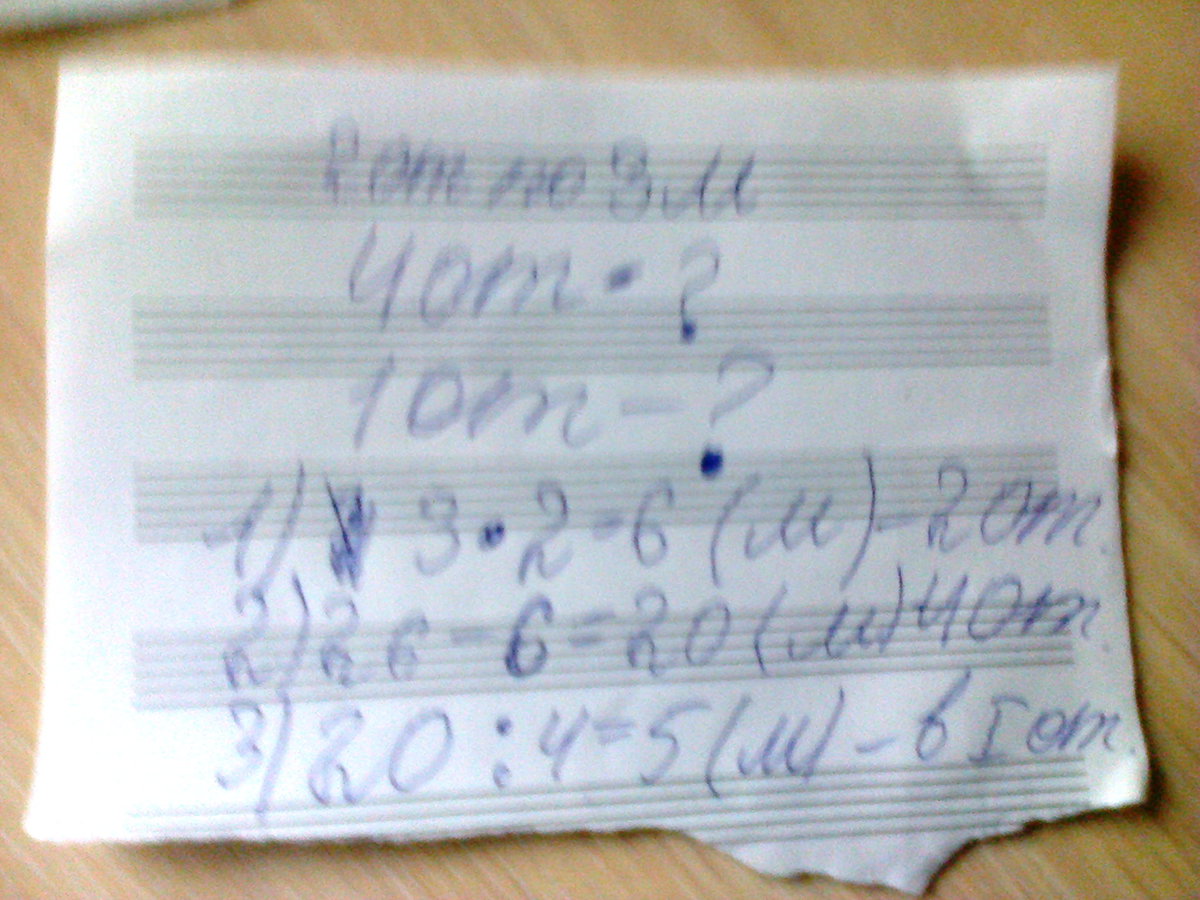 2 от по 3 м
4 от - ?
1 от - ?
1) 3 • 2 = 6 (м) - 2 от.
2) 26 - 6 = 20 (м) 4 от.
3) 20 : 4 = 5 (м) - в I от.